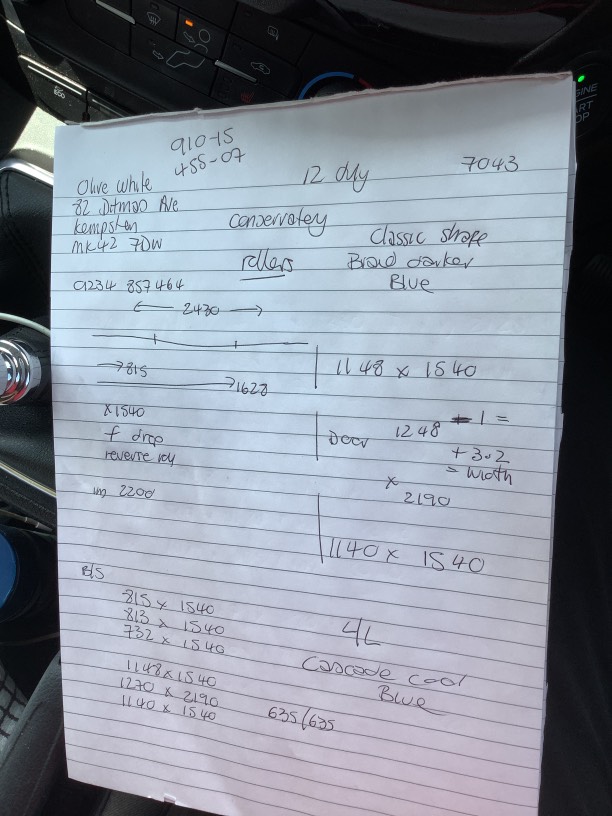 910-15
455-07
12 dly
7043
Olive White
82 Ditmas Ave
Kempston
MK42 7DW
conservatey
rollers
Classic shape
Broad darker
Blue
01234 857464
← 2430 →
→815
→1628
x1540
f drop
reverse roll
2200
1148 x 1540
Door 1248 - 1 =
+ 3.2
= width
x
2190
1140 x 1540
B/S
815 x 1540
813 x 1540
732 x 1540
1148 x 1540
1270 x 2190
1140 x 1540
635/635
4L
Cascade cool
Blue